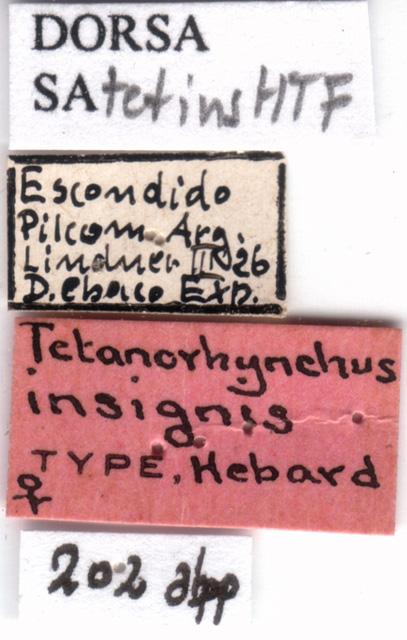 DORSA
SAtetinsHTF
Escondido
Pilcom. Arg.
Lindner III 26
D. Chaco Exp.
Tetanorhynchus
insignis
TYPE, Hebard
♀
202 abpp